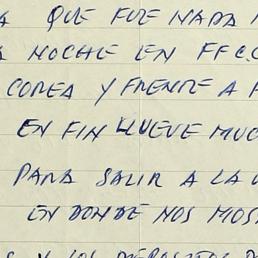 A QUE FUE NADA
A NOCHE EN FFCC
COREA Y FRENTE A
EN FIN LLUEVE MUC
PARA SALIR A LA
EN DONDE NOS MOS
Y LOS DEPOSITOS D